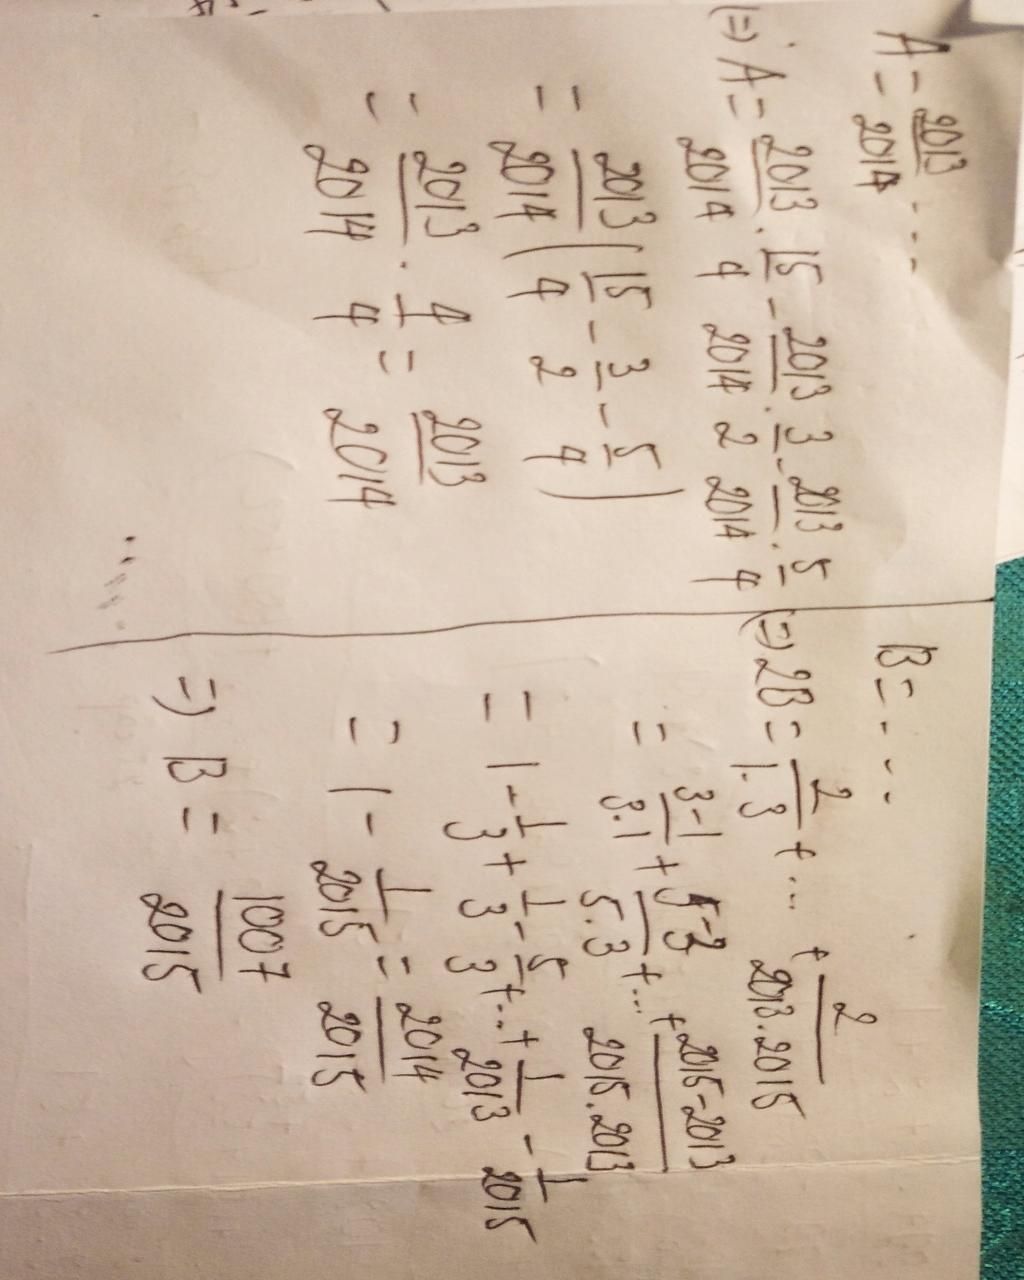 A = 2013/2014 ....
(=) A = 2013/2014 . 15/4 - 2013/2014 . 3/2 - 2013/2014 . 5/4
= 2013/2014 ( 15/4 - 3/2 - 5/4 )
= 2013/2014 . 4/4 = 2013/2014
B = ....
(=) 2B = 2/1.3 + ... + 2/2013.2015
= 3-1/3.1 + 5-3/5.3 + ... + 2015-2013/2015.2013
= 1 - 1/3 + 1/3 - 5/3 + ... + 1/2013 - 1/2015
= 1 - 1/2015 = 2014/2015
=) B = 1007/2015